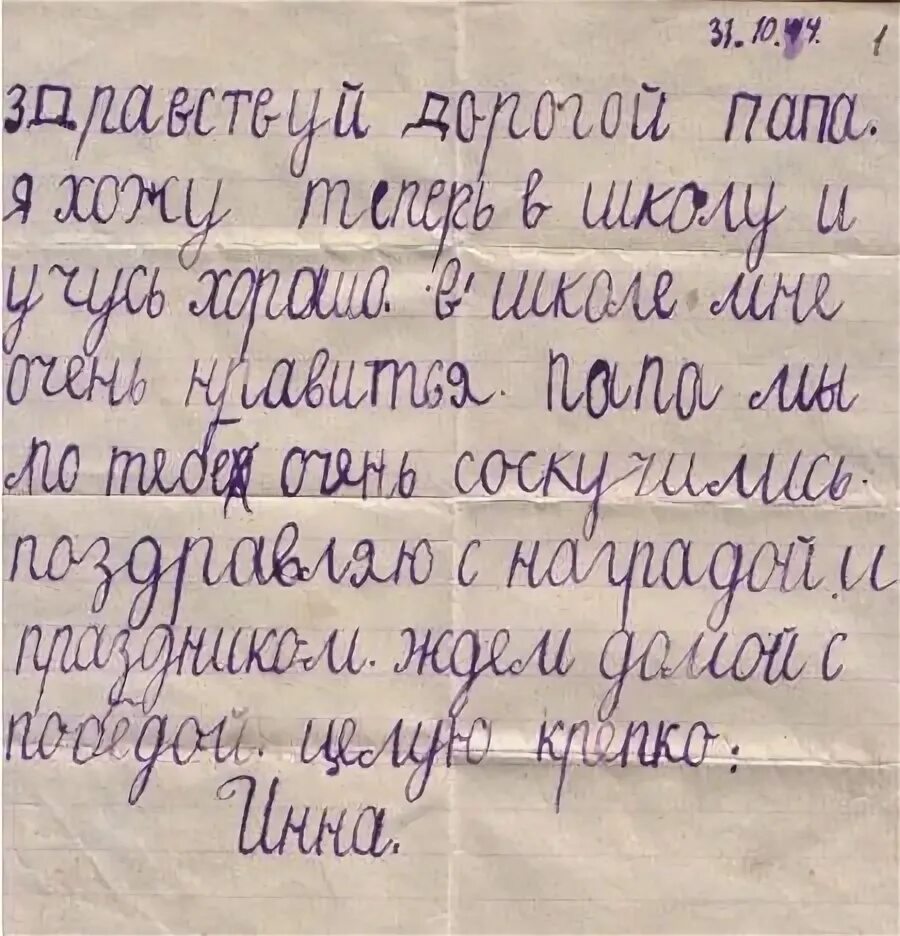 31.10.44. 1
здравствуй дорогой папа.
я хожу теперь в школу и
учусь хорошо. в школе мне
очень нравится. папа мы
по тебе очень соскучились.
поздравляю с наградой и
праздником. ждем домой с
победой. целую крепко.
Инна.